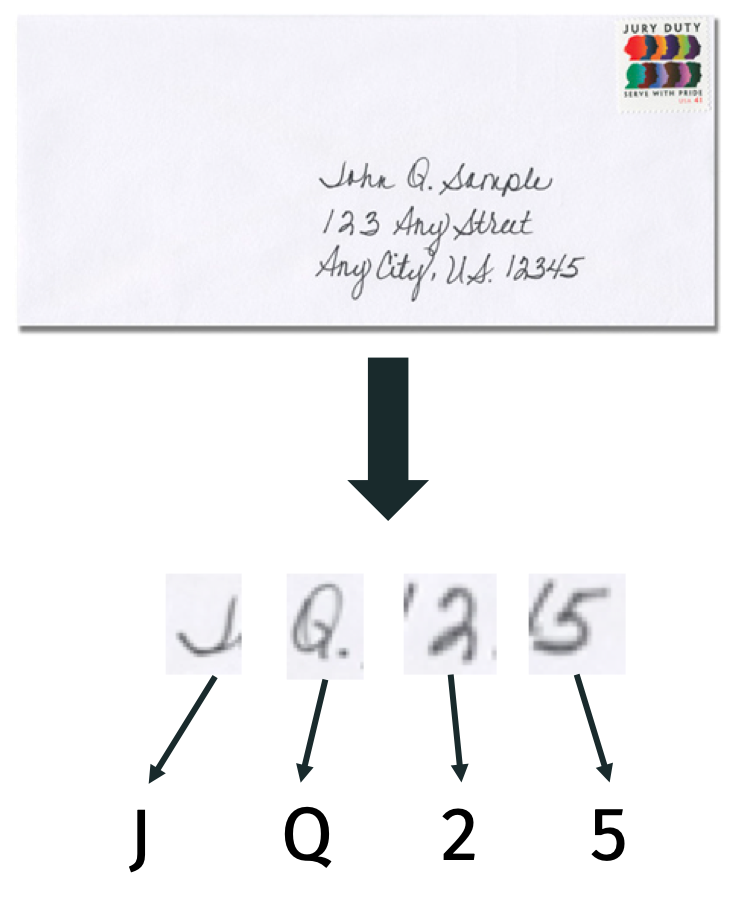 JURY DUTY
SERVE WITH PRIDE
USA 41
John Q. Sample
123 Any Street
Any City, U.S. 12345
J Q. 2 5
J Q 2 5